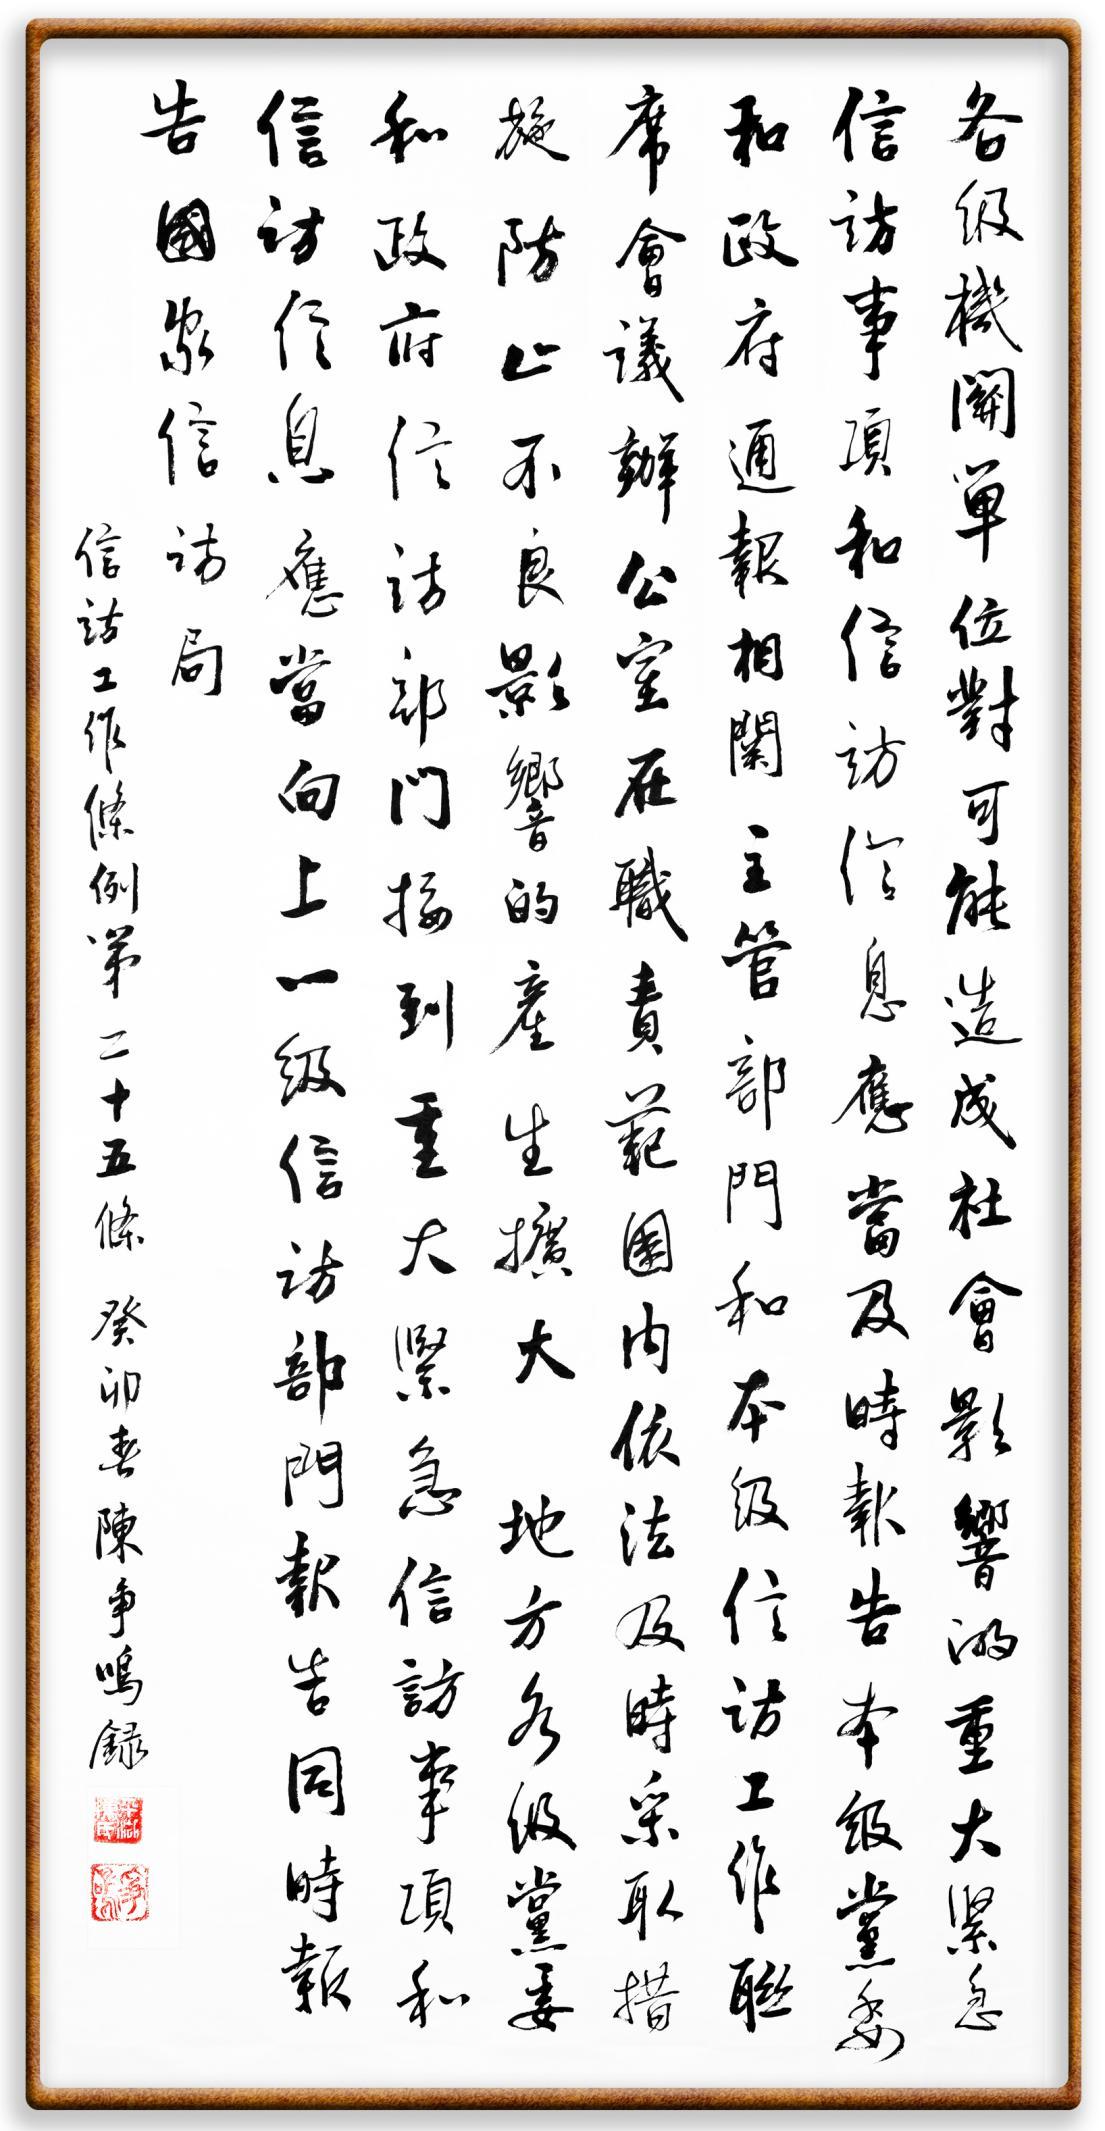 各級機關單位對可能造成社會影響的重大緊急
信訪事項和信訪信息應當及時報告本級黨委
和政府通報相關主管部門和本級信訪工作聯
席會議辦公室在職責範圍内依法及時采取措
施防止不良影響的產生擴大 地方各級黨委
和政府信訪部門接到重大緊急信訪事項和
信訪信息應當向上一級信訪部門報告同時報
告國家信訪局
信訪工作條例第二十五條 癸卯春陳爭鳴錄